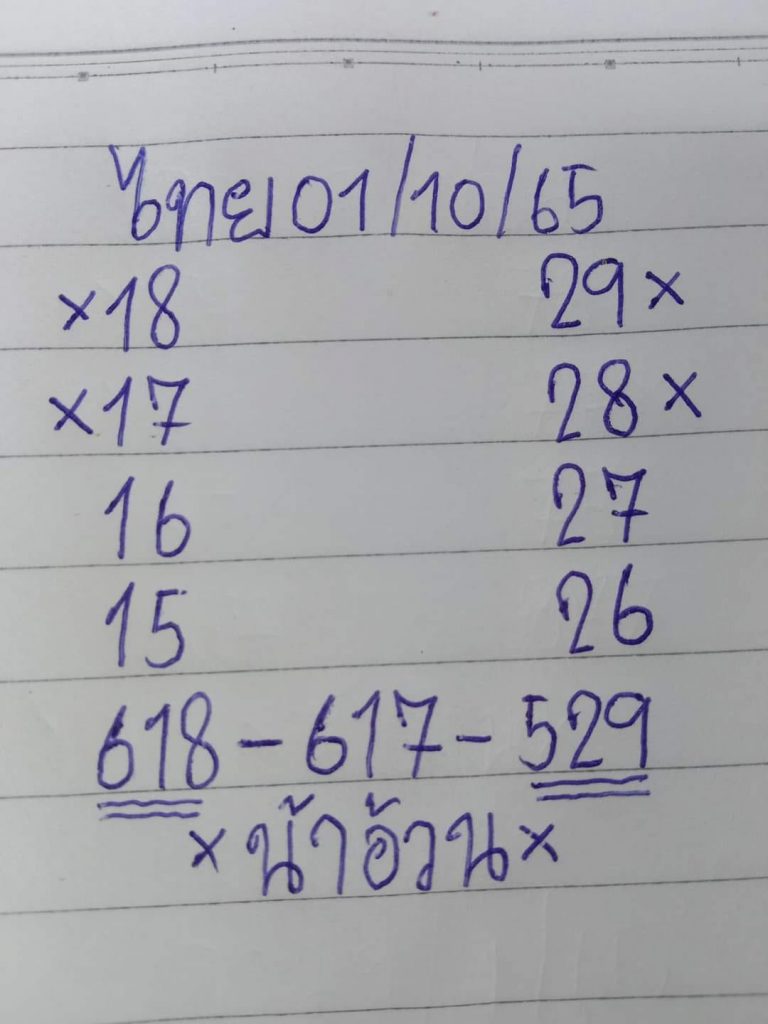 ไทย 01/10/65
×18 29×
×17 28×
16 27
15 26
618 - 617 - 529
×น้าอ้วน×